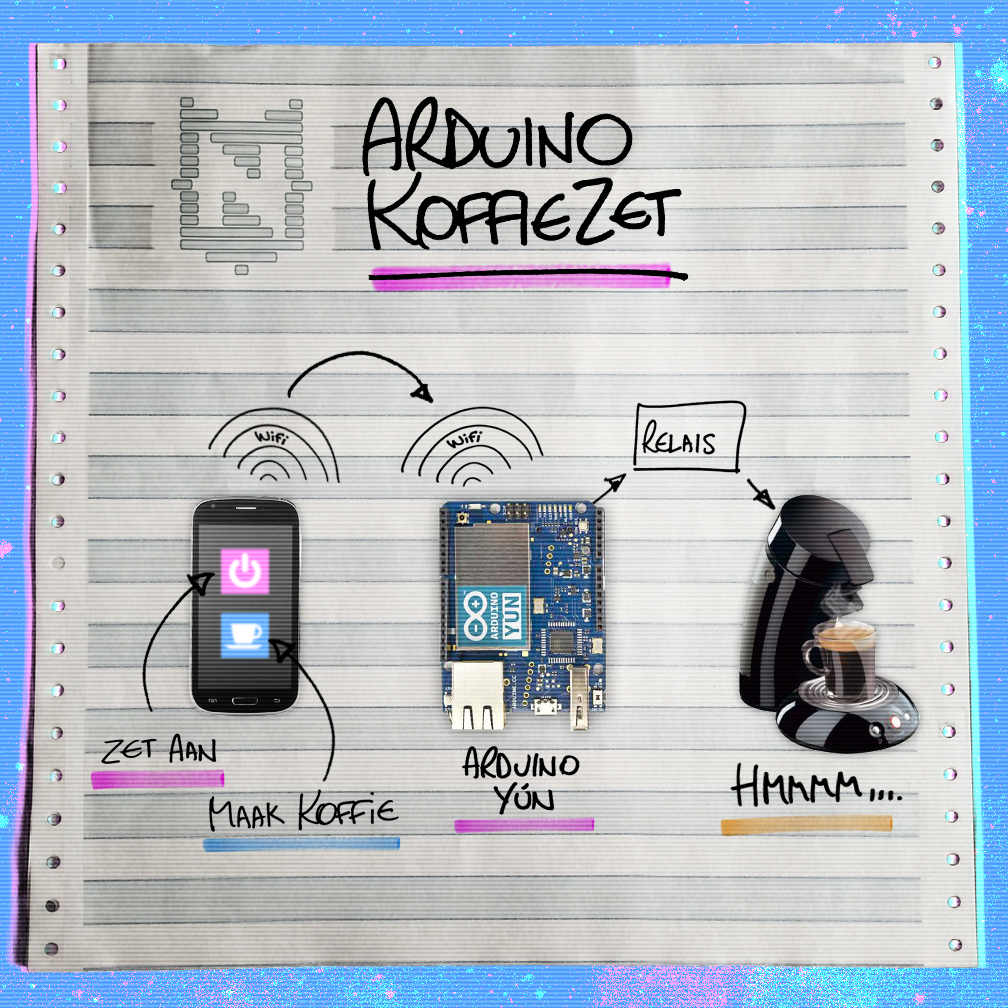 ARDUINO
KOFFIEZET
Wifi
Wifi
RELAIS
ARDUINO
YUN
ZET AAN
MAAK KOFFIE
ARDUINO
YÚN
HMMMM....